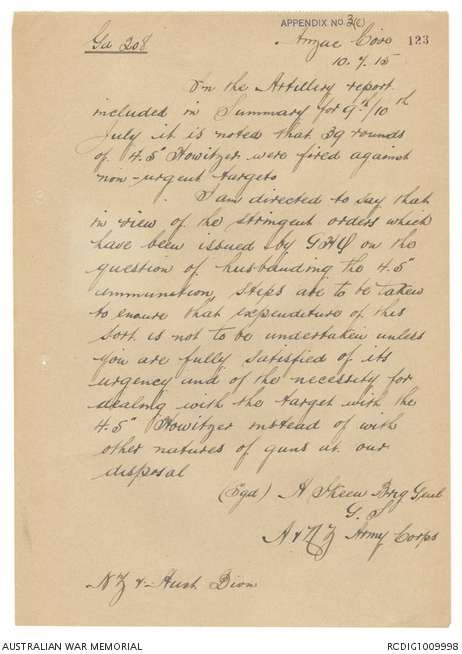 APPENDIX NO. 3(c)
Ga 208
Anzac Cove 123
10.7.15
In the Artillery report
included in Summary for 9th/10th
July it is noted that 39 rounds
of 4.5" Howitzer were fired against
non-urgent targets
I am directed to say that
in view of the stringent orders which
have been issued by GHQ on the
question of husbanding the 4.5"
ammunition, steps are to be taken
to ensure that expenditure of this
sort is not to be undertaken unless
you are fully satisfied of its
urgency and of the necessity for
dealing with the target with the
4.5" Howitzer instead of with
other natures of guns at our
disposal
(Sgd) A Skeen Brig Genl
G. S
A & NZ Army Corps
NZ & Aust Divn
AUSTRALIAN WAR MEMORIAL
RCDIG1009998